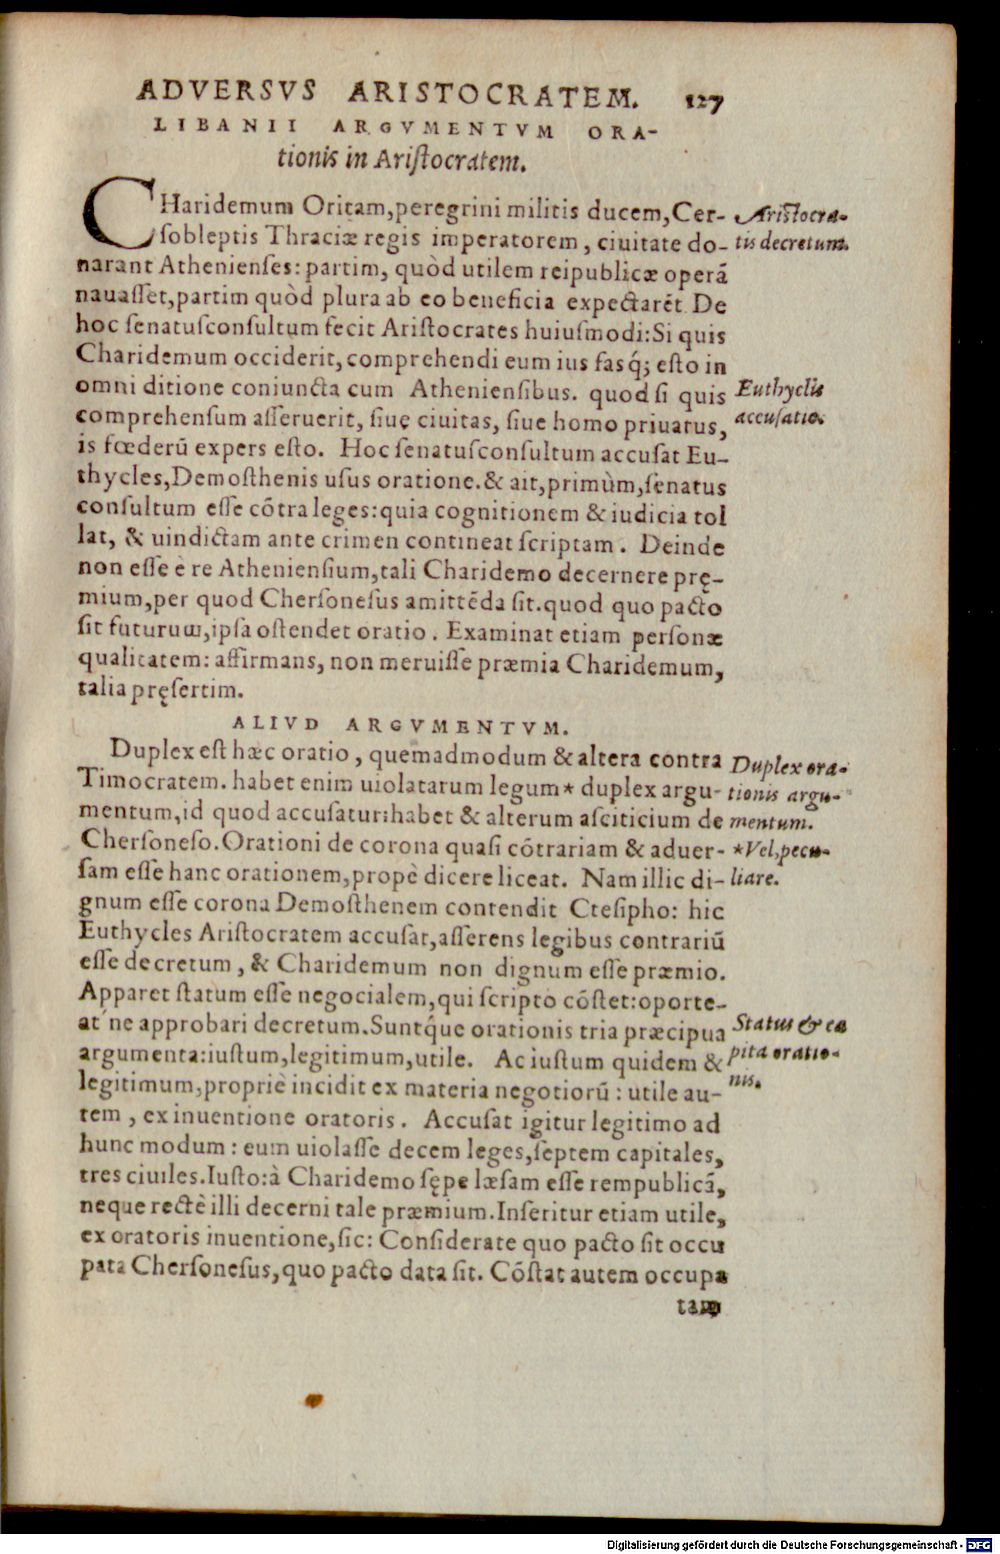 ADVERSVS ARISTOCRATEM. 127
LIBANII ARGVMENTVM ORA-
tionis in Aristocratem.
CHaridemum Oritam,peregrini militis ducem,Cer-
sobleptis Thraciæ regis imperatorem, ciuitate do-
narant Athenienses: partim, quòd utilem reipublicæ operã
nauasset,partim quòd plura ab eo beneficia expectarẽt. De
hoc senatusconsultum fecit Aristocrates huiusmodi:Si quis
Charidemum occiderit,comprehendi eum ius fasq́; esto in
omni ditione coniuncta cum Atheniensibus. quod si quis
comprehensum asseruerit, siue ciuitas, siue homo priuatus,
is fœderũ expers esto. Hoc senatusconsultum accusat Eu-
thycles,Demosthenis usus oratione.& ait,primùm,senatus
consultum esse cõtra leges:quia cognitionem & iudicia tol
lat, & uindictam ante crimen contineat scriptam. Deinde
non esse è re Atheniensium,tali Charidemo decernere prę-
mium,per quod Chersonesus amittẽda sit.quod quo pacto
sit futurum,ipsa ostendet oratio. Examinat etiam personæ
qualitatem: affirmans, non meruisse præmia Charidemum,
talia pręsertim.
Aristocra-
tis decretum.
Euthyclis
accusatio.
ALIVD ARGVMENTVM.
Duplex est hæc oratio, quemadmodum & altera contra
Timocratem. habet enim uiolatarum legum* duplex argu-
mentum,id quod accusatur:habet & alterum asciticium de
Chersoneso.Orationi de corona quasi cõtrariam & aduer-
sam esse hanc orationem,propè dicere liceat. Nam illic di-
gnum esse corona Demosthenem contendit Ctesipho: hic
Euthycles Aristocratem accusat,asserens legibus contrariũ
esse decretum, & Charidemum non dignum esse præmio.
Apparet statum esse negocialem,qui scripto cõstet:oporte-
at ne approbari decretum.Suntq́ue orationis tria præcipua
argumenta:iustum,legitimum,utile. Ac iustum quidem &
legitimum,propriè incidit ex materia negotiorũ: utile au-
tem, ex inuentione oratoris. Accusat igitur legitimo ad
hunc modum: eum uiolasse decem leges,septem capitales,
tres ciuiles.Iusto:à Charidemo sępe læsam esse rempublicã,
neque rectè illi decerni tale præmium.Inseritur etiam utile,
ex oratoris inuentione,sic: Considerate quo pacto sit occu
pata Chersonesus,quo pacto data sit. Cõstat autem occupa
tam
Duplex ora-
tionis argu-
mentum.
*Vel,pecu-
liare.
Status & ca
pita oratio-
nis.
Digitalisierung gefördert durch die Deutsche Forschungsgemeinschaft - DFG